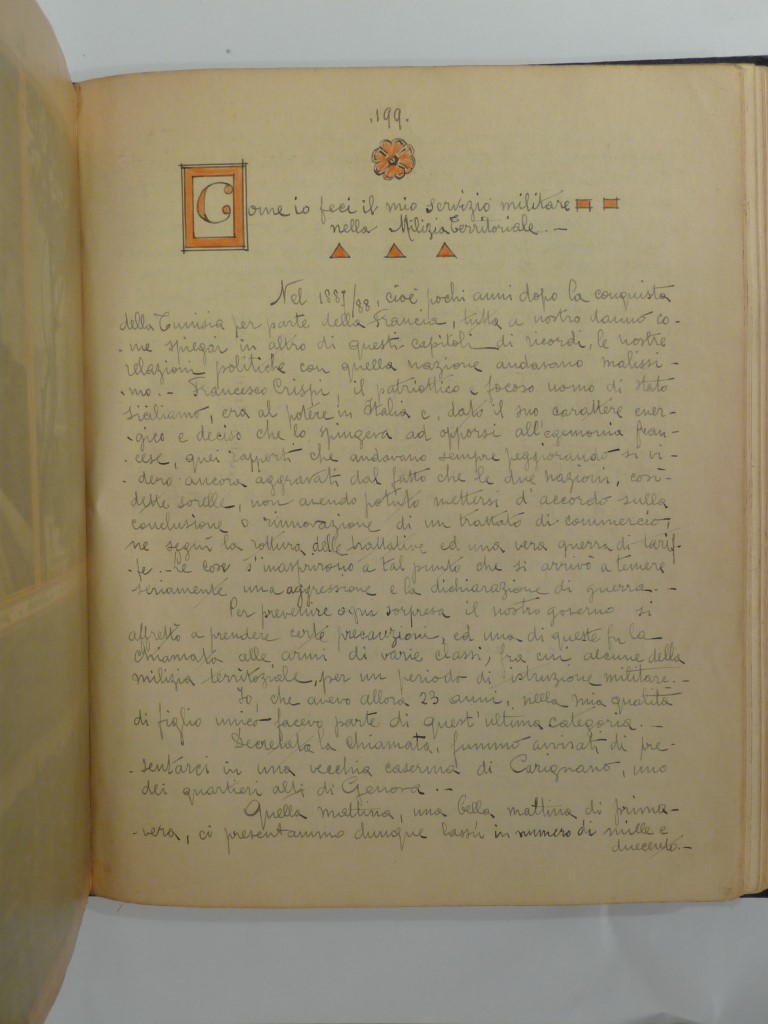 .199.
Come io feci il mio servizio militare
nella Milizia Territoriale. -
Nel 1887/88, cioè pochi anni dopo la conquista
della Tunisia per parte della Francia, tutta a nostro danno co-
-me spiegai in altro di questi capitoli di ricordi, le nostre
relazioni politiche con quella nazione andavano malissi-
-mo. - Francesco Crispi, il patriottico e focoso uomo di stato
siciliano, era al potere in Italia e, dato il suo carattere ener-
-gico e deciso che lo spingeva ad opporsi all'egemonia fran-
-cese, quei rapporti che andavano sempre peggiorando si vi-
-dero ancora aggravati dal fatto che le due nazioni, cosi-
-dette sorelle, non avendo potuto mettersi d'accordo sulla
conclusione o rinnovazione di un trattato di commercio,
ne seguì la rottura delle trattative ed una vera guerra di tarif-
-fe. - Le cose s'inasprirono a tal punto che si arrivò a temere
seriamente una aggressione e la dichiarazione di guerra. -
Per prevenire ogni sorpresa il nostro governo si
affrettò a prendere certe precauzioni, ed una di queste fu la
chiamata alle armi di varie classi, fra cui alcune della
milizia territoriale, per un periodo di istruzione militare. -
Io, che avevo allora 23 anni, nella mia qualità
di figlio unico facevo parte di quest'ultima categoria. -
Decretata la chiamata, fummo avvisati di pre-
-sentarci in una vecchia caserma di Carignano, uno
dei quartieri alti di Genova. -
Quella mattina, una bella mattina di prima-
-vera, ci presentammo dunque lassù in numero di mille e
duecento. -